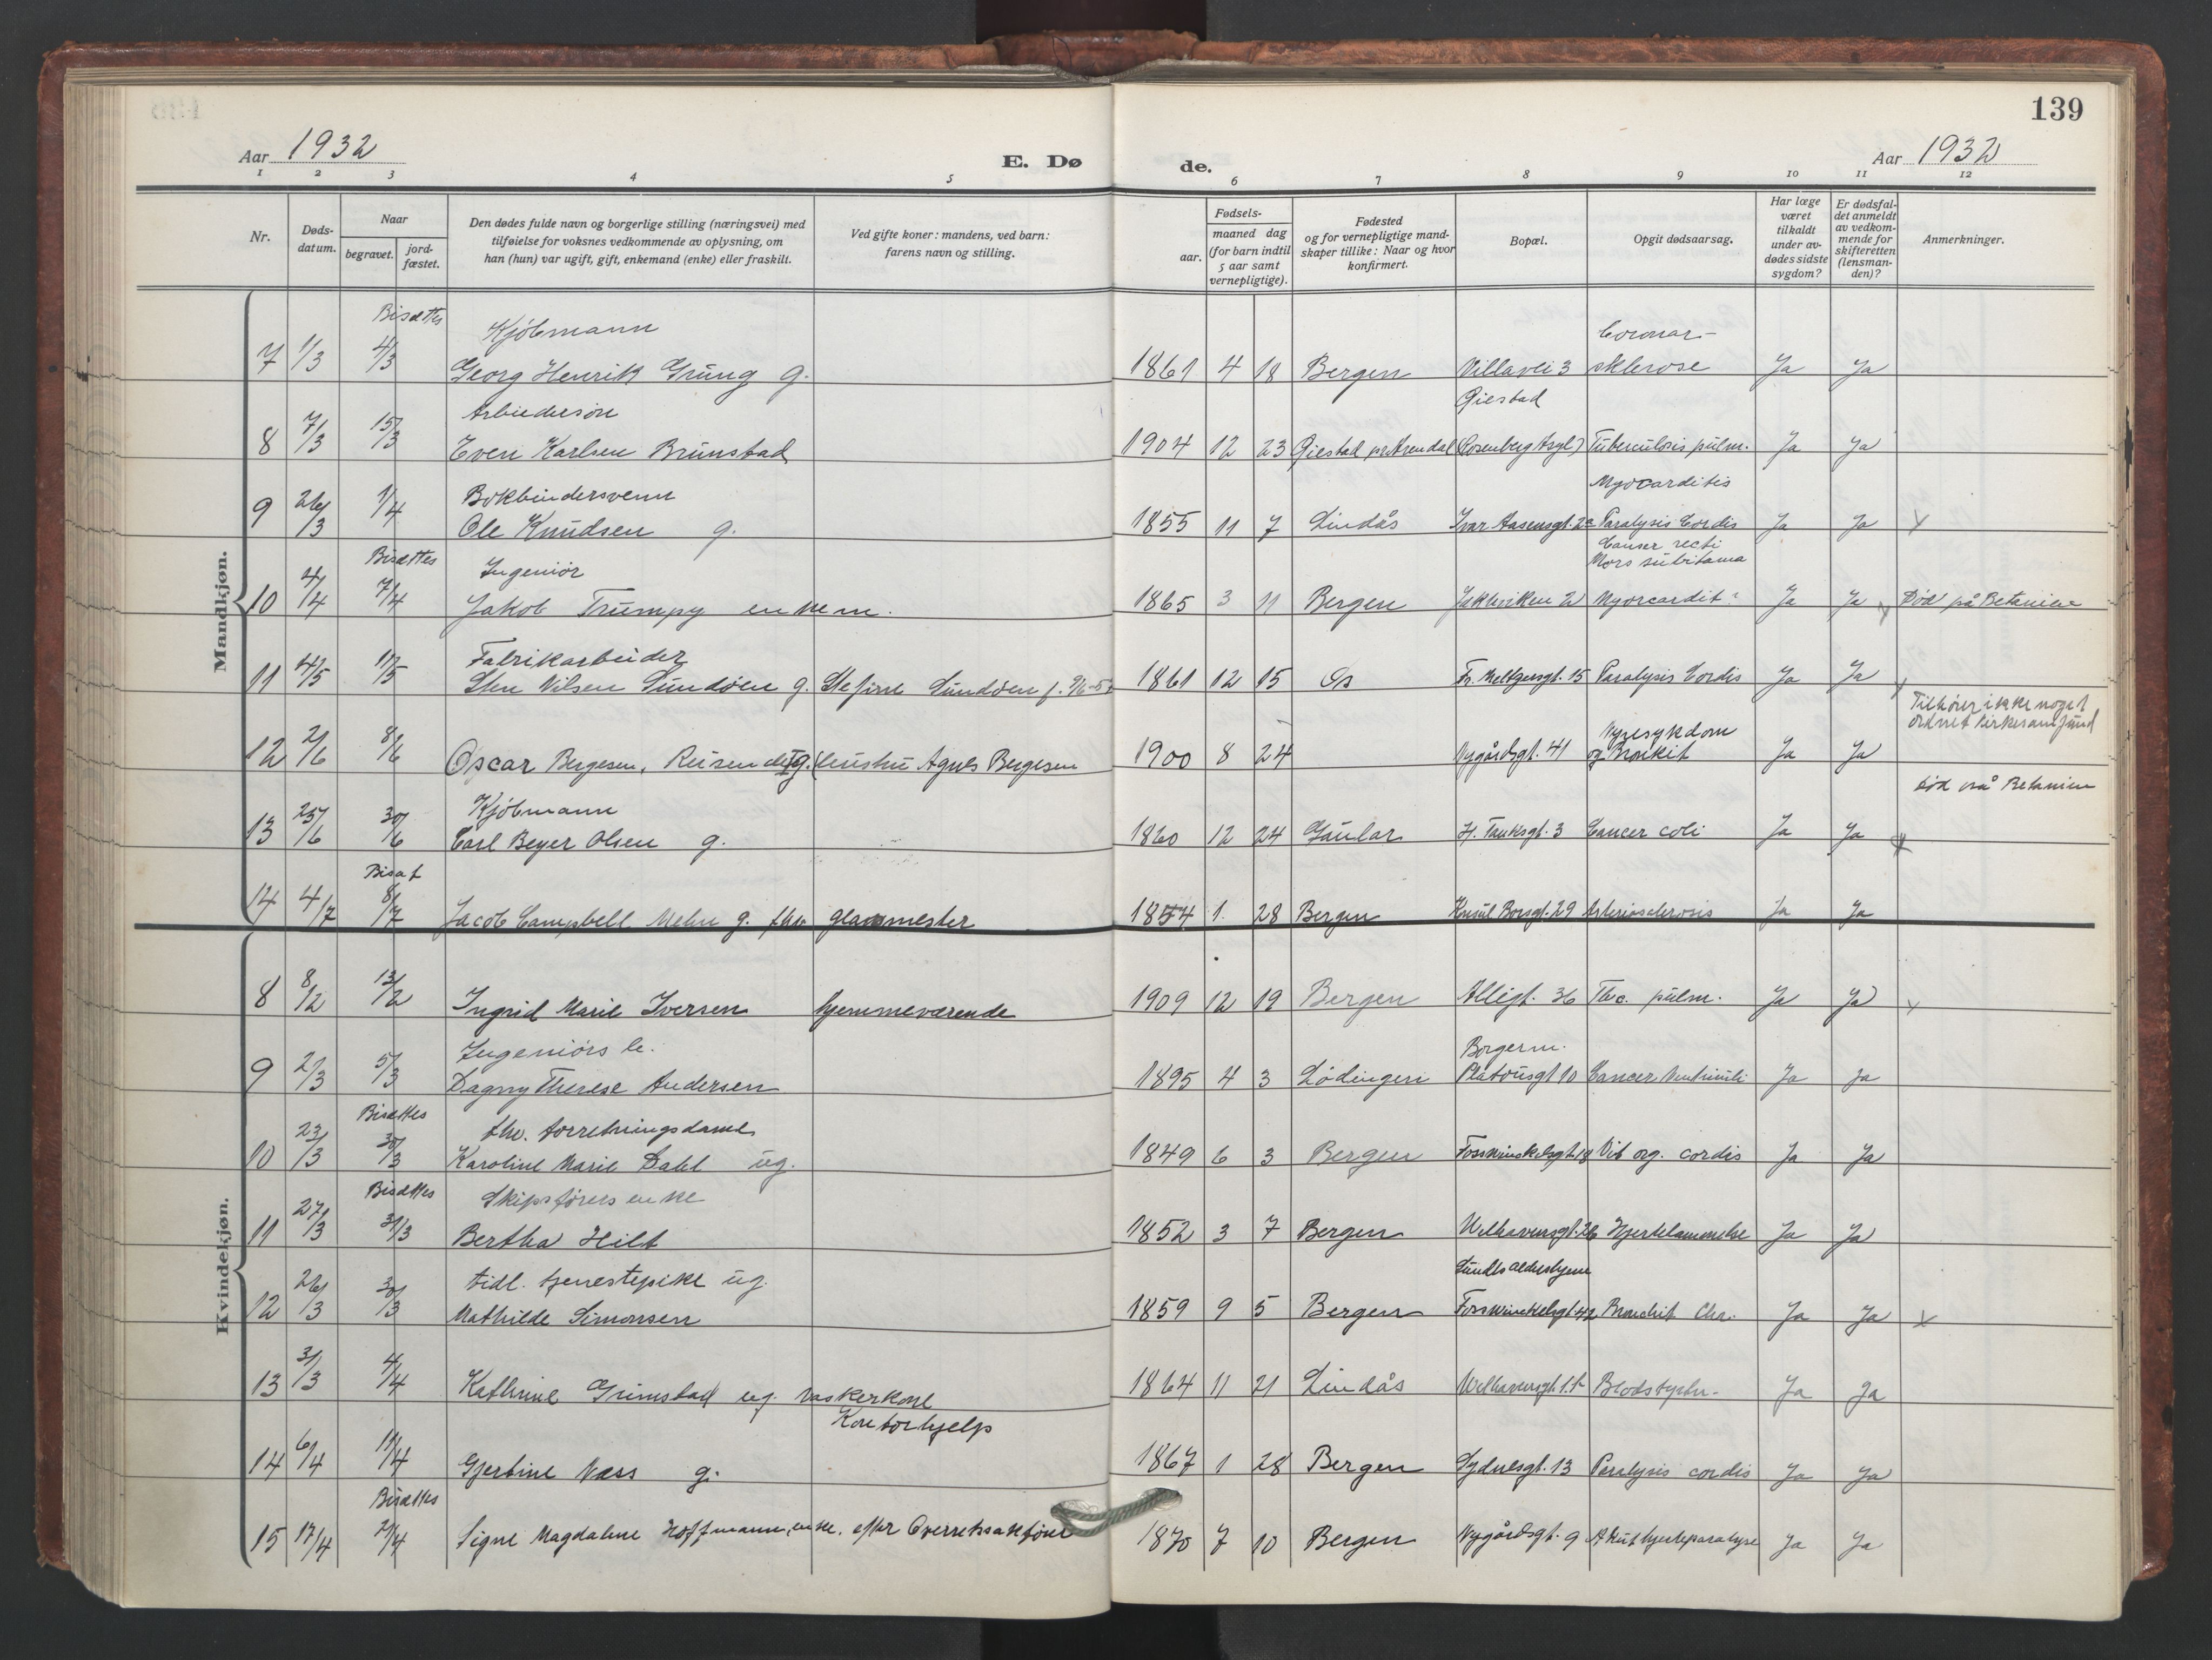 139
Aar 1932
E. Døde.
Aar 1932
1 2 3 4 5 6 7 8 9 10 11 12
Nr.
Døds-datum.
Naar
begravet.
jord-fæstet.
Den dødes fulde navn og borgerlige stilling (næringsvei) med
tilføielse for voksnes vedkommende av oplysning, om
han (hun) var ugift, gift, enkemand (enke) eller fraskilt.
Ved gifte koner: mandens, ved barn:
farens navn og stilling.
Fødsels-
aar.
maaned dag
(for barn indtil
5 aar samt
vernepligtige).
Fødested
og for vernepligtige mand-
skaper tillike: Naar og hvor
konfirmert.
Bopæl.
Opgit dødsaarsag.
Har læge
været
tilkaldt
under av-
dødes sidste
sygdom?
Er dødsfal-
det anmeldt
av vedkom-
mende for
skifteretten
(lensman-
den)?
Anmerkninger.
Mandkjøn.
Bisættes Kjöbmann Coronar-
7 1/3 4/3 Georg Henrik Grung g. 1861 4 18 Bergen Villavei 3 sklerose Ja Ja
Arbeidersön Giestad
8 7/3 15/3 Even Karlsen Brunstad 1904 12 23 Giestad pr Arendal (Rosenberg Asyl) Tuberculosis pulm. Ja Ja
Bokbindersvenn Myocarditis
9 26/3 1/4 Ole Knudsen g. 1855 11 7 Lindås Ivar Aasensgt. 22 Paralysis Cordis Ja Ja x
Bisættes Ingeniör Canser recti
Mors subitama
10 4/4 7/4 Jakob Trumpy enkem. 1865 3 11 Bergen Jekteviken 2 Myorcardit Ja Ja Död på Betanien
Fabrikarbeider
11 4/5 11/5 Sten Nilsen Sundöen g. Stefine Sundöen f. 1861 12 15 Os Fr. Meltzersgt. 15 Paralysis Cordis Ja Ja
Tilhörer ikke noget
ordnet kirkesamfund
Nyresykdom
12 2/6 8/6 Oscar Bergesen, Reisende g. (hustru Agnes Bergesen 1900 8 24 Nygårdsgt. 41 og Bronkit Ja Ja
Kjöbmann död på Betanien
13 25/6 30/6 Carl Beyer Olsen g. 1860 12 24 Gaular H. Tanksgt. 3 Cancer coli Ja Ja
Bisat
14 4/7 8/7 Jacob Campbell Mehn g. fhv. glassmester 1854 1 28 Bergen Konsul Børsgt. 29 Arteriosclerosis Ja Ja
Kvindekjøn.
8 8/2 13/2 Ingrid Marie Iversen hjemmeværende 1909 12 19 Bergen Allégt. 36 Tbc. pulm. Ja Ja x
Ingeniörs h. Borgerm.
9 2/3 5/3 Dagny Therese Andersen 1895 4 3 Lödingen Platousgt 10 Cancer Ventriculi Ja Ja
Bisættes fhv. forretningsdame
10 23/3 30/3 Karoline Marie Dahl ug. 1849 6 3 Bergen Fosswinckelsgt. 18 Vit org. cordis Ja Ja
Bisættes Skipsförers enke
11 27/3 31/3 Bertha Hilt 1852 3 7 Bergen Welhavensgt. 26 Hjertelammelse Ja Ja
tidl. tjenestepike ug. Sundts aldershjem
12 26/3 30/3 Mathilde Simonsen 1859 9 5 Bergen Fosswinckelsgt. 42 Bronchit Chr. Ja Ja x
13 31/3 4/4 Kathrine Grimstad ug. vaskerkone 1864 11 21 Lindås Welhavensgt. Blodstyrtn. Ja Ja
Kontorhjelp
14 6/4 11/4 Gjertine Næss g. 1867 1 28 Bergen Sydnesgt. 13 Paralysis cordis Ja Ja
Bisættes
15 17/4 21/4 Signe Magdalene Hoffmann, enke. efter Overretsaktfører 1870 7 10 Bergen Nygårdsgt. 9 Akut hjerteparalyse Ja Ja